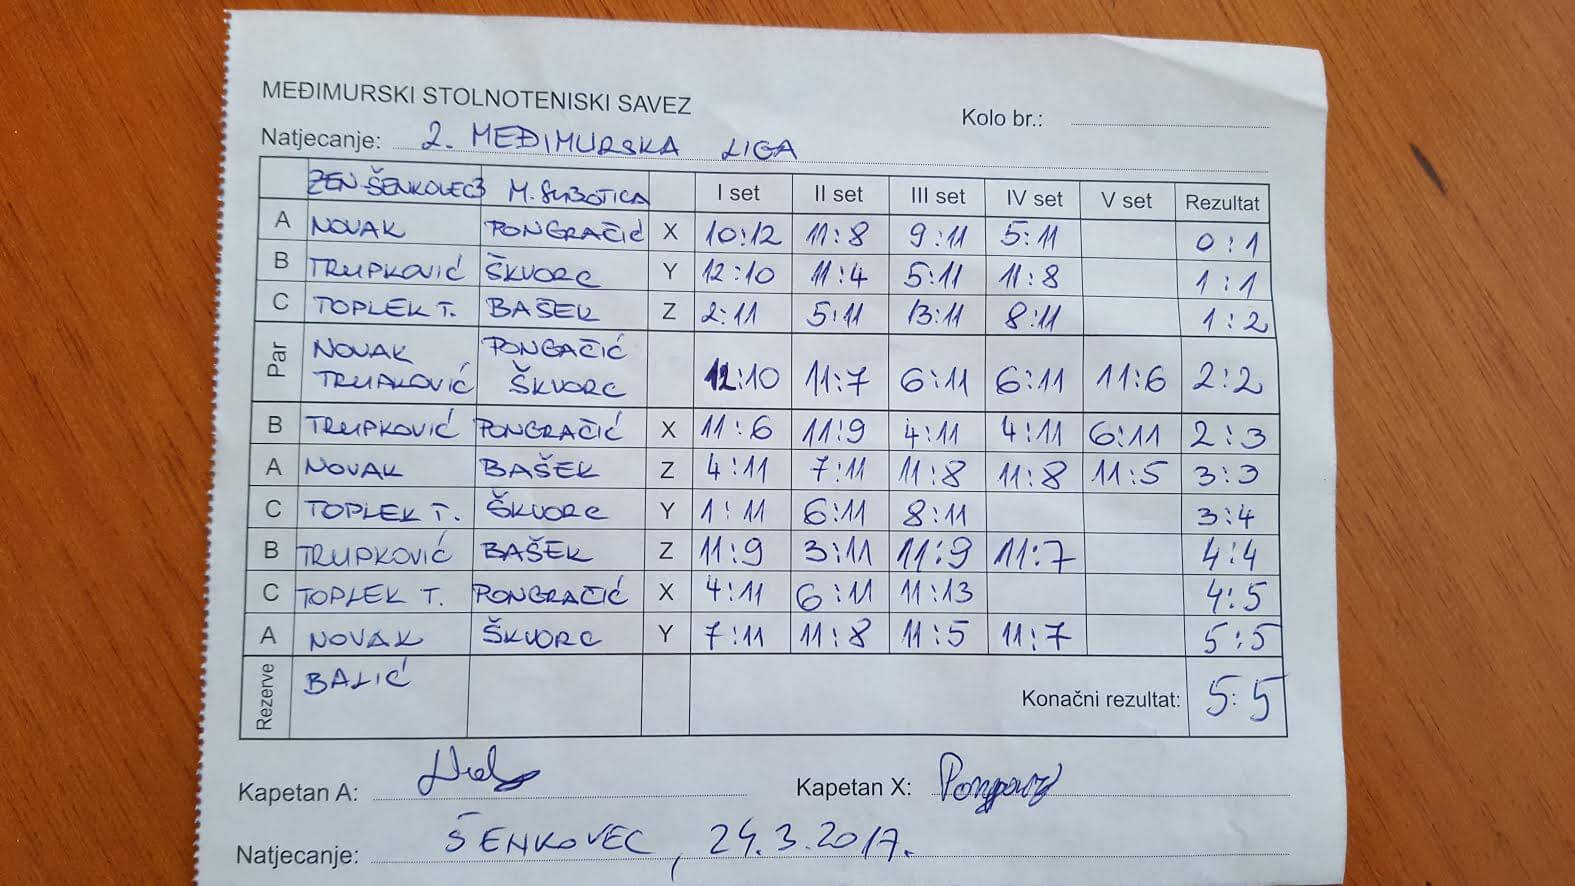 MEĐIMURSKI STOLNOTENISKI SAVEZ
Kolo br.:
Natjecanje: 2. MEĐIMURSKA LIGA
ZEN-ŠENKOVEC 3 M. SUBOTICA I set II set III set IV set V set Rezultat
A NOVAK PONGRAČIĆ X 10:12 11:8 9:11 5:11 0:1
B TRUPKOVIĆ ŠKVORC Y 12:10 11:4 5:11 11:8 1:1
C TOPLEK T. BAŠEK Z 2:11 5:11 13:11 8:11 1:2
Par NOVAK PONGAČIĆ
TRUPKOVIĆ ŠKVORC 12:10 11:7 6:11 6:11 11:6 2:2
B TRUPKOVIĆ PONGRAČIĆ X 11:6 11:9 4:11 4:11 6:11 2:3
A NOVAK BAŠEK Z 4:11 7:11 11:8 11:8 11:5 3:3
C TOPLEK T. ŠKVORC Y 1:11 6:11 8:11 3:4
B TRUPKOVIĆ BAŠEK Z 11:9 3:11 11:9 11:7 4:4
C TOPLEK T. PONGRAČIĆ X 4:11 6:11 11:13 4:5
A NOVAK ŠKVORC Y 7:11 11:8 11:5 11:7 5:5
Rezerve BALIĆ Konačni rezultat: 5:5
Kapetan A: Kapetan X:
Natjecanje: ŠENKOVEC, 24.3.2017.